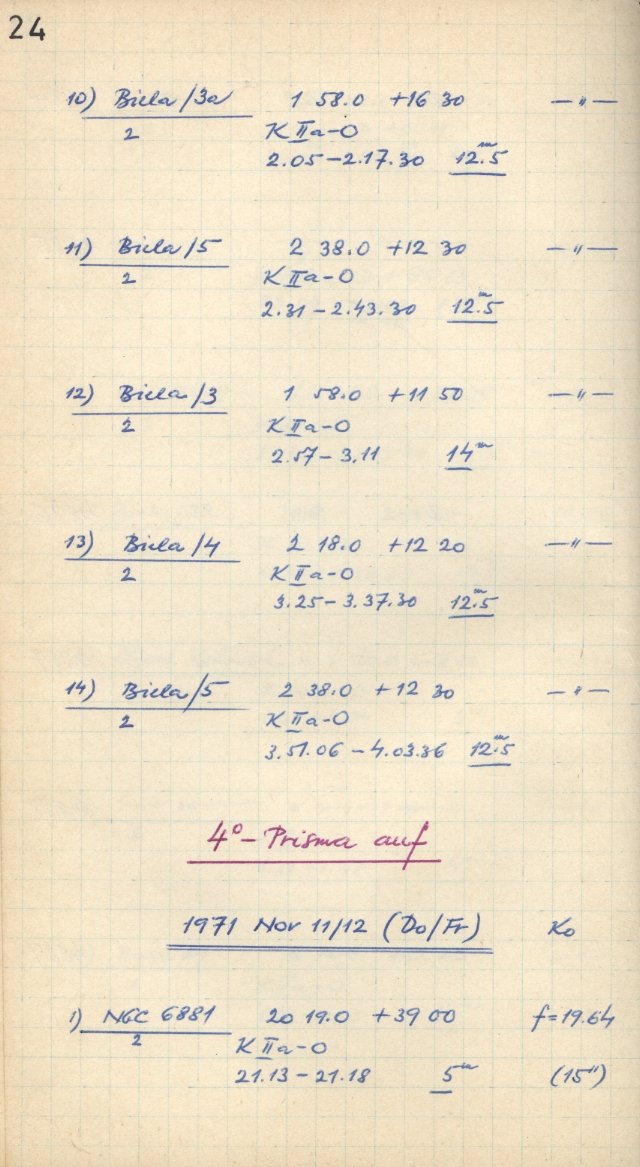 24
10) Biela/3a 1 58.0 +16 30 —"—
2 K IIa-O
2.05–2.17.30 12.5ᵐ
11) Biela/5 2 38.0 +12 30 —"—
2 K IIa-O
2.31–2.43.30 12.5ᵐ
12) Biela/3 1 58.0 +11 50 —"—
2 K IIa-O
2.57–3.11 14ᵐ
13) Biela/4 2 18.0 +12 20 —"—
2 K IIa-O
3.25–3.37.30 12.5ᵐ
14) Biela/5 2 38.0 +12 30 —"—
2 K IIa-O
3.51.06–4.03.36 12.5ᵐ
4°-Prisma auf
1971 Nov 11/12 (Do/Fr) Ko
1) NGC 6881 20 19.0 +39 00 f=19.64
2 K IIa-O
21.13–21.18 5ᵐ (15")